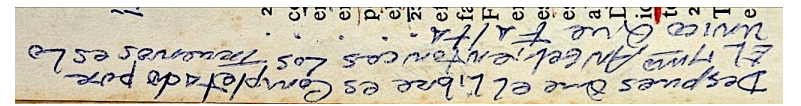 Despues Que el Libre es Completado por
El 7mo Angel, entonces Los Truenos es Lo
unico Que Falta . . .